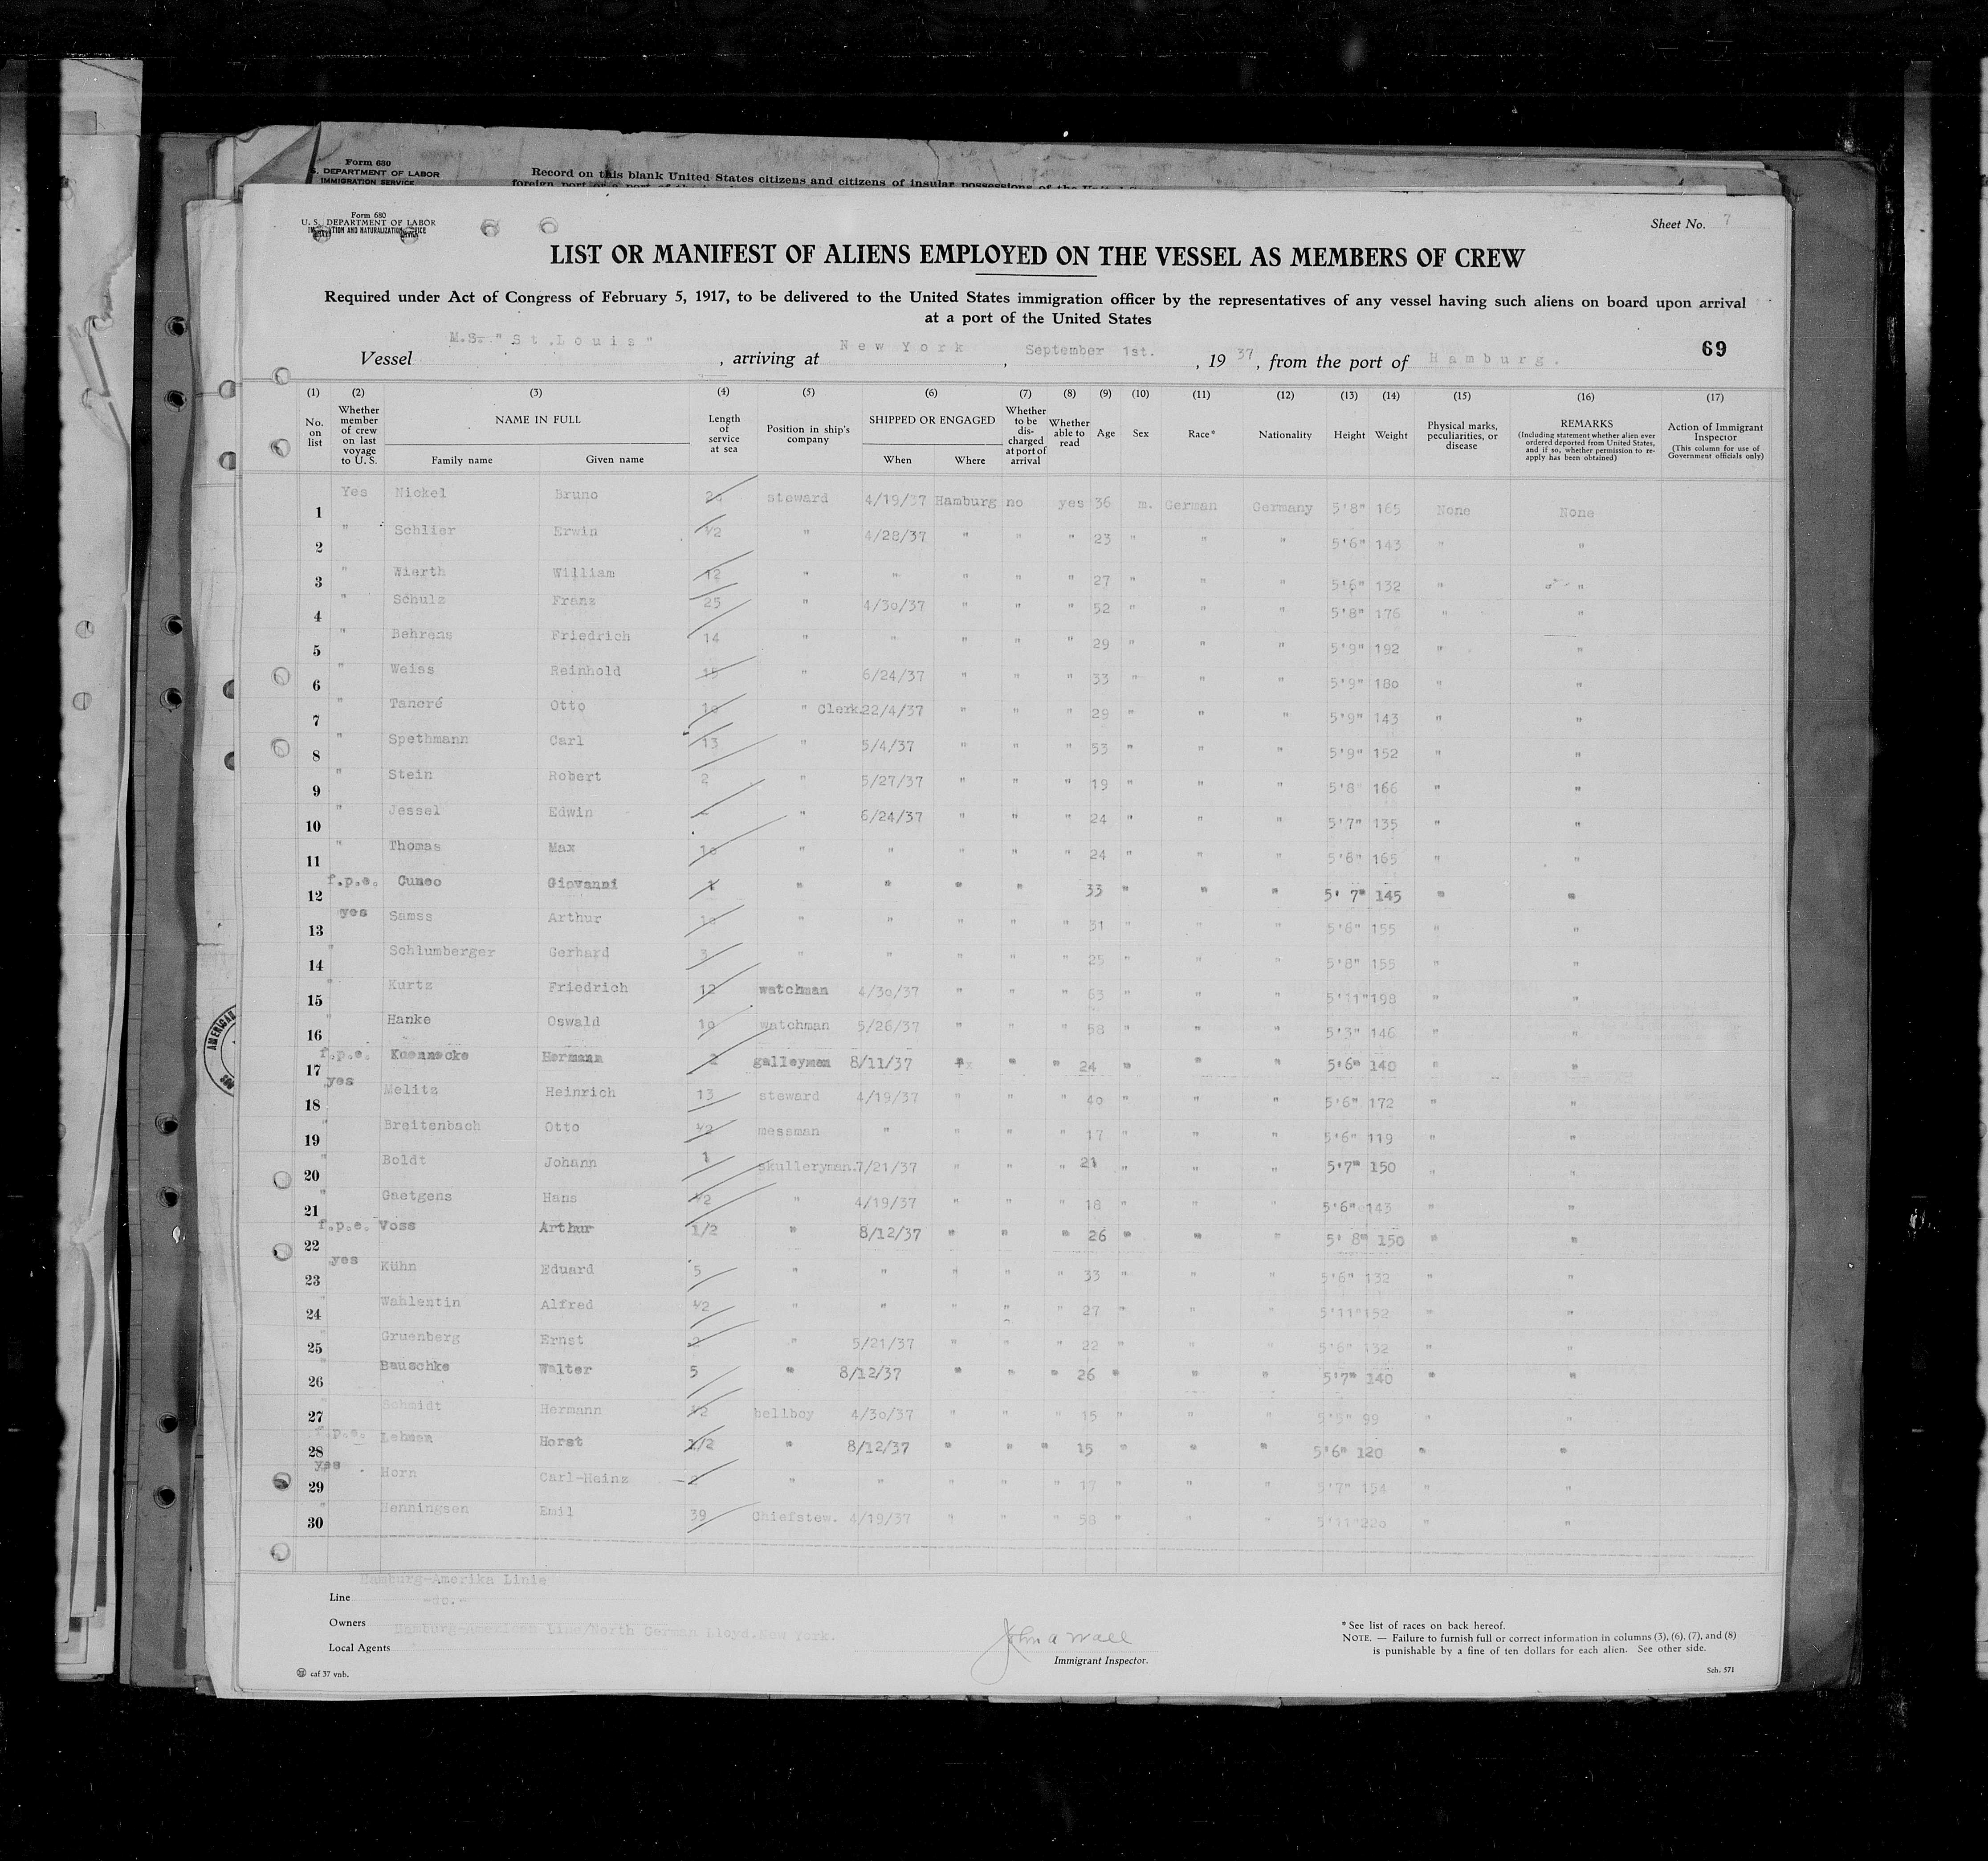 Form 630
S. DEPARTMENT OF LABOR
IMMIGRATION SERVICE
Record on this blank United States citizens and citizens of insular possessions of the
Form 680
U. S. DEPARTMENT OF LABOR
IMMIGRATION AND NATURALIZATION SERVICE
Sheet No. 7
LIST OR MANIFEST OF ALIENS EMPLOYED ON THE VESSEL AS MEMBERS OF CREW
Required under Act of Congress of February 5, 1917, to be delivered to the United States immigration officer by the representatives of any vessel having such aliens on board upon arrival
at a port of the United States
69
Vessel M.S. "St.Louis", arriving at New York, September 1st., 1937, from the port of Hamburg.
(1) (2) (3) (4) (5) (6) (7) (8) (9) (10) (11) (12) (13) (14) (15) (16) (17)
No. on list
Whether member of crew on last voyage to U. S.
NAME IN FULL
Family name Given name
Length of service at sea
Position in ship's company
SHIPPED OR ENGAGED
When Where
Whether to be discharged at port of arrival
Whether able to read
Age
Sex
Race*
Nationality
Height
Weight
Physical marks, peculiarities, or disease
REMARKS
(Including statement whether alien ever ordered deported from United States, and if so, whether permission to reapply has been obtained)
Action of Immigrant Inspector
(This column for use of Government officials only)
1 Yes Nickel Bruno steward 4/19/37 Hamburg no yes 36 m. German Germany 5'8" 165 None None
2 " Schlier Erwin 1/2 " 4/28/37 " " " 23 " " " 5'6" 143 " "
3 " Wierth William 12 " " " " " 27 " " " 5'6" 132 " "
4 " Schulz Franz 25 " 4/30/37 " " " 52 " " " 5'8" 176 " "
5 " Behrens Friedrich 14 " " " " " 29 " " " 5'9" 192 " "
6 " Weiss Reinhold 15 " 6/24/37 " " " 33 " " " 5'9" 180 " "
7 " Tancré Otto 10 " Clerk. 22/4/37 " " " 29 " " " 5'9" 143 " "
8 " Spethmann Carl 13 " 5/4/37 " " " 53 " " " 5'9" 152 " "
9 " Stein Robert 2 " 5/27/37 " " " 19 " " " 5'8" 166 " "
10 " Jessel Edwin " 6/24/37 " " " 24 " " " 5'7" 135 " "
11 " Thomas Max 10 " " " " " 24 " " " 5'6" 165 " "
12 f.p.e. Cuneo Giovanni 1 " " " " 33 " " 5' 7" 145 " "
13 yes Samss Arthur " " " " " 31 " " " 5'6" 155 " "
14 " Schlumberger Gerhard 3 " " " " " 25 " " " 5'8" 155 " "
15 " Kurtz Friedrich 12 watchman 4/30/37 " " " 63 " " " 5'11" 198 " "
16 " Hanke Oswald 10 watchman 5/26/37 " " " 58 " " " 5'3" 146 " "
17 f.p.e. Koennecke Hermann 2 galleyman 8/11/37 " " " 24 " " " 5'6" 140 " "
18 yes Melitz Heinrich 13 steward 4/19/37 " " " 40 " " " 5'6" 172 " "
19 " Breitenbach Otto 1/2 messman " " " " 17 " " " 5'6" 119 " "
20 " Boldt Johann 1 skulleryman. 7/21/37 " " " 21 " " " 5'7" 150 " "
21 " Gaetgens Hans 1/2 " 4/19/37 " " " 18 " " " 5'6" 143 " "
22 f.p.e. Voss Arthur 1/2 " 8/12/37 " " " 26 " " " 5' 8" 150 " "
23 yes Kühn Eduard 5 " " " " " 33 " " " 5'6" 132 " "
24 " Wahlentin Alfred 1/2 " " " " " 27 " " " 5'11" 152 " "
25 " Gruenberg Ernst 2 " 5/21/37 " " " 22 " " " 5'6" 132 " "
26 " Bauschke Walter 5 " 8/12/37 " " " 26 " " " 5'7" 140 " "
27 " Schmidt Hermann 1/2 bellboy 4/30/37 " " " 15 " " " 99 " "
28 f.p.e. Lehmen Horst 1/2 " 8/12/37 " " " 15 " " " 5'6" 120 " "
29 yes Horn Carl-Heinz 2 " " " " " 17 " " " 5'7" 154 " "
30 " Henningsen Emil 39 Chiefstew. 4/19/37 " " " 58 " " " 5'11" 220 " "
Line Hamburg-Amerika Linie
Owners -do.-
Local Agents Hamburg-American Line/North German Lloyd.New York.
John A Wall
Immigrant Inspector.
* See list of races on back hereof.
NOTE. — Failure to furnish full or correct information in columns (3), (6), (7), and (8)
is punishable by a fine of ten dollars for each alien. See other side.
caf 37 vnb.
Sch. 571
AMERICAN